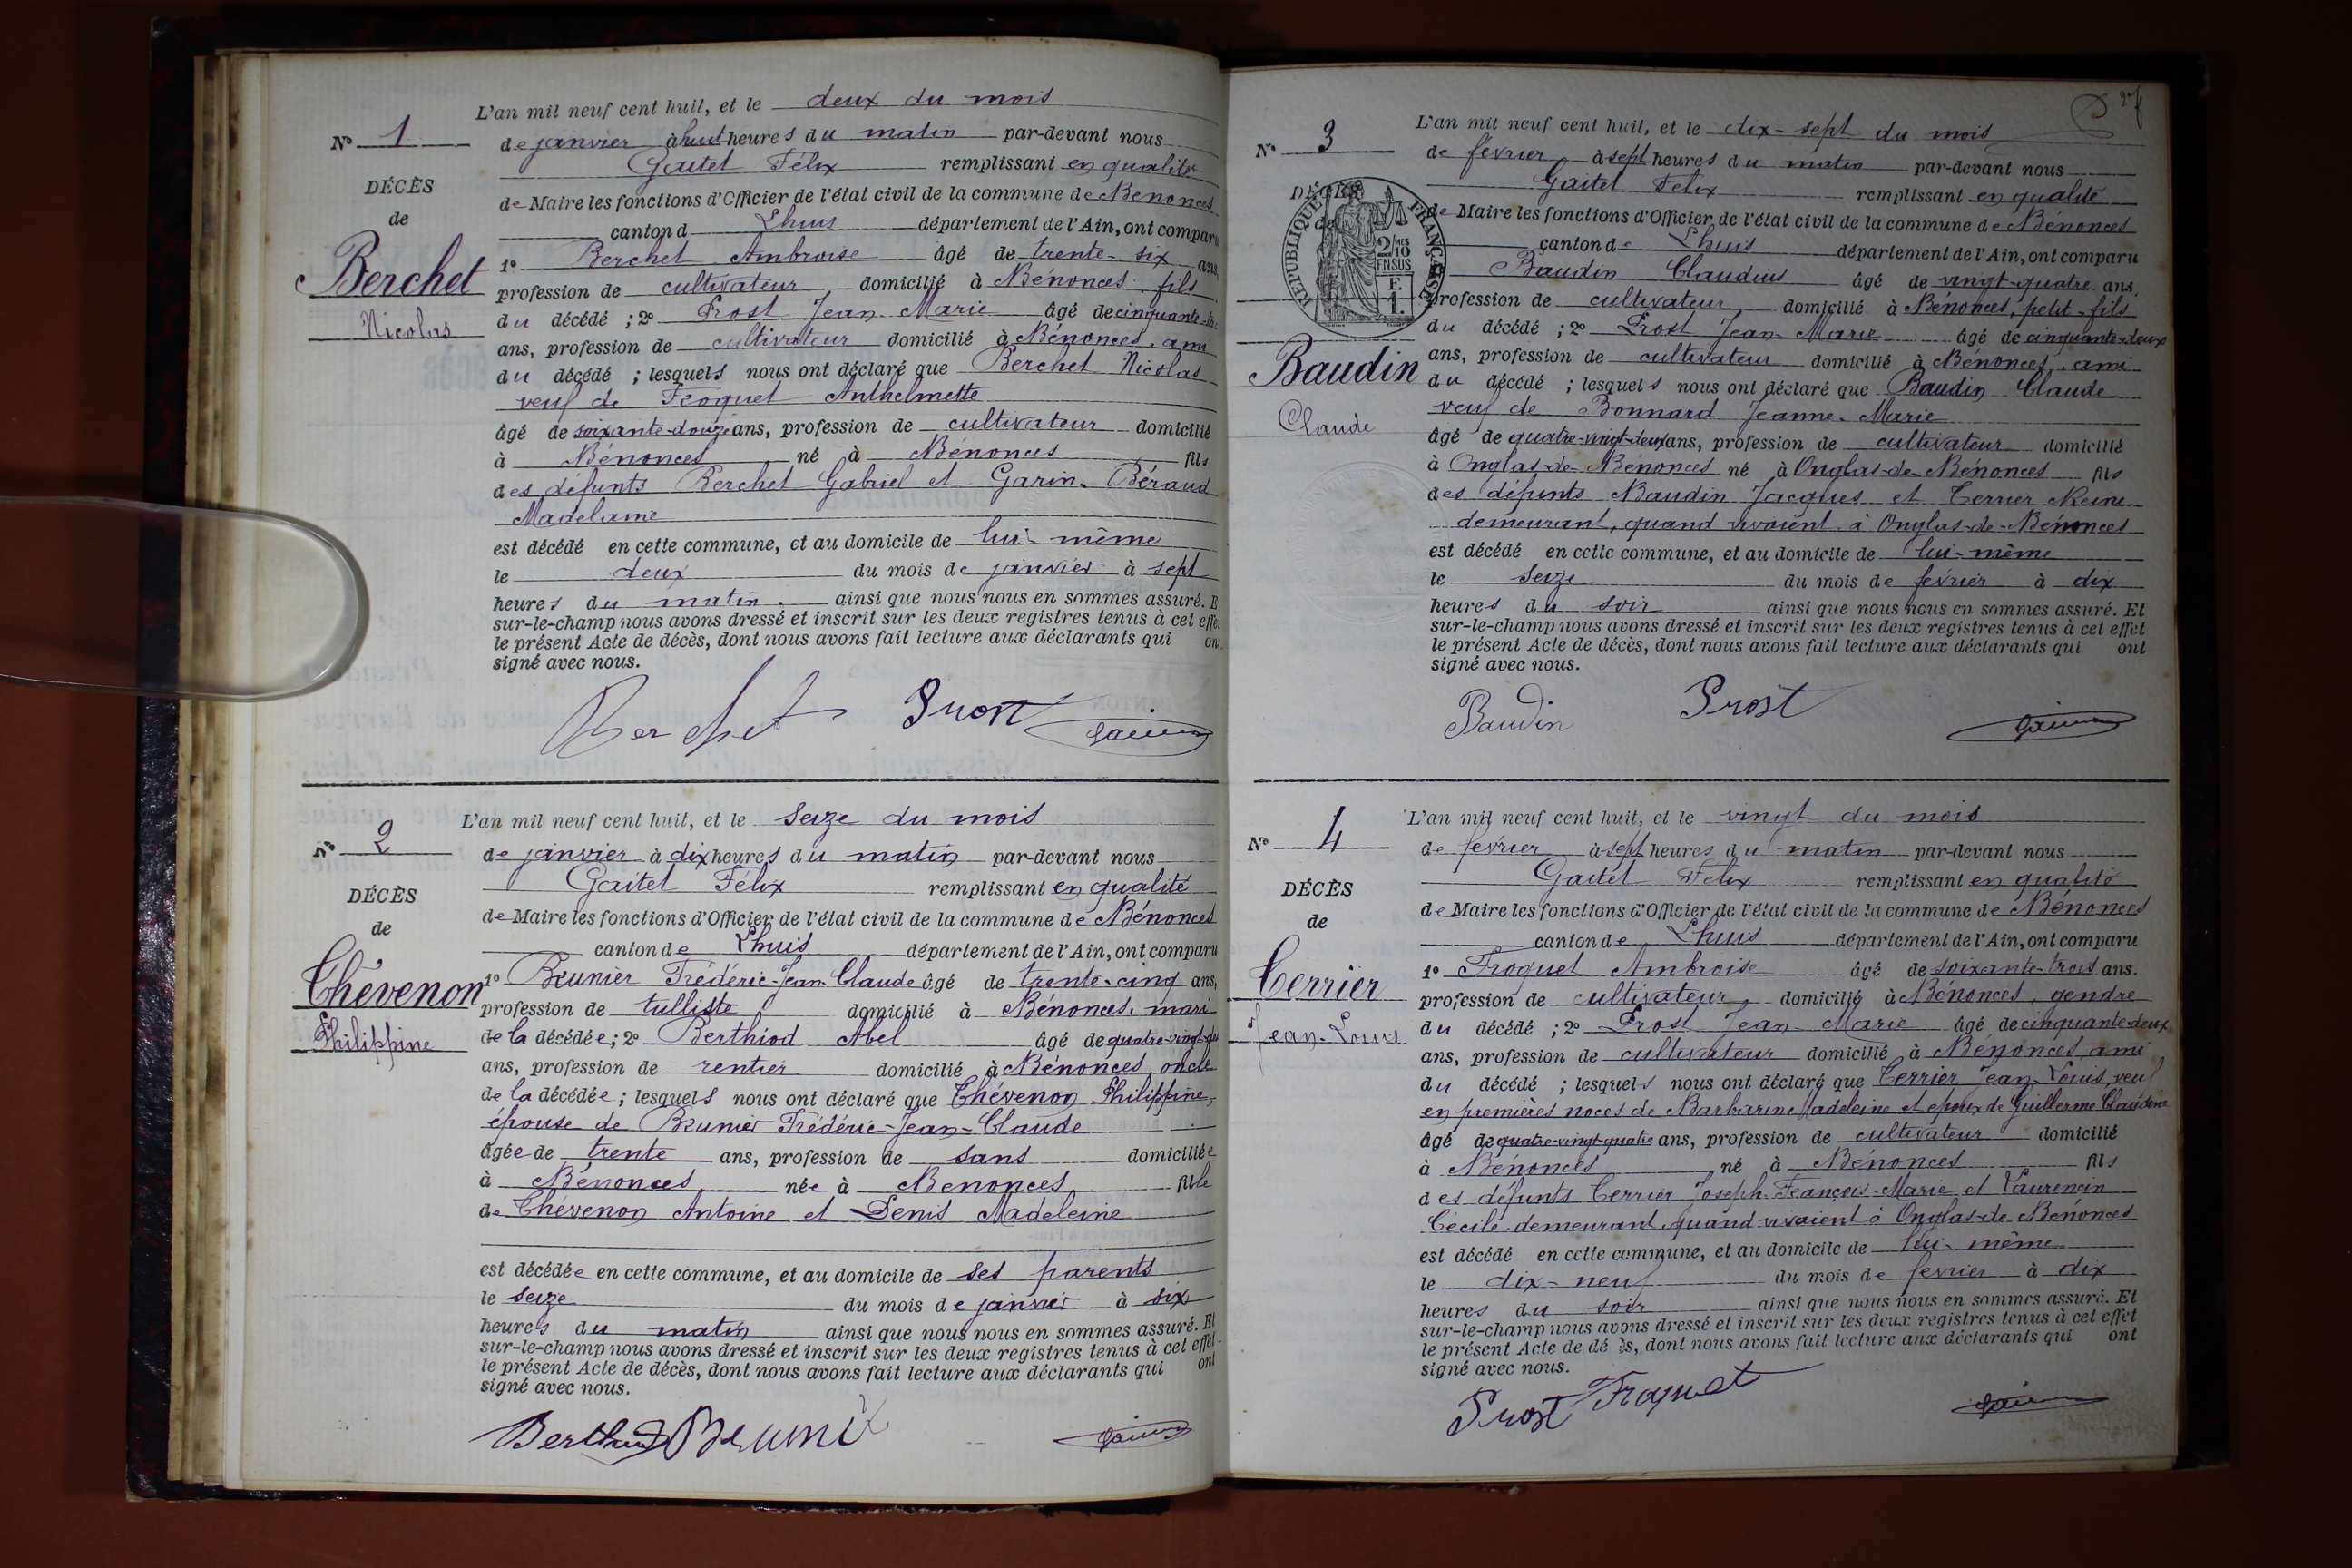 N° 1
DÉCÈS
de
Berchet
Nicolas
L'an mil neuf cent huit, et le deux du mois
de janvier à huit heures du matin par-devant nous
Gaitet Félix remplissant en qualité
de Maire les fonctions d'Officier de l'état civil de la commune de Bénonces
canton d Lhuis département de l'Ain, ont comparu
1° Berchet Ambroise âgé de trente-six ans,
profession de cultivateur, domicilié à Bénonces fils
du décédé ; 2° Prost Jean-Marie âgé de cinquante-
ans, profession de cultivateur domicilié à Bénonces, ami
du décédé ; lesquels nous ont déclaré que Berchet Nicolas
veuf de Froquet Anthelmette
âgé de soixante-douze ans, profession de cultivateur domicilié
à Bénonces né à Bénonces fils
des défunts Berchet Gabriel et Garin-Béraud
Madelaine
est décédé en cette commune, et au domicile de lui-même
le deux du mois de janvier à sept
heures du matin. ainsi que nous nous en sommes assuré. E
sur-le-champ nous avons dressé et inscrit sur les deux registres tenus à cet effe
le présent Acte de décès, dont nous avons fait lecture aux déclarants qui on
signé avec nous.
Berchet Prost
N° 2
DÉCÈS
de
Thévenon
Philippine
L'an mil neuf cent huit, et le seize du mois
de janvier à dix heures du matin par-devant nous
Gaitet Félix remplissant en qualité
de Maire les fonctions d'Officier de l'état civil de la commune de Bénonces
canton de Lhuis département de l'Ain, ont comparu
1° Brunier Frédéric-Jean-Claude âgé de trente-cinq ans,
profession de tulliste domicilié à Bénonces, mari
de la décédée; 2° Berthiod Abel âgé de quatre-vingt-
ans, profession de rentier domicilié à Bénonces, oncle
de la décédée; lesquels nous ont déclaré que Thévenon Philippine,
épouse de Brunier Frédéric-Jean-Claude
âgée de trente ans, profession de sans domiciliée
à Bénonces née à Bénonces fille
de Thévenon Antoine et Denis Madeleine
est décédée en cette commune, et au domicile de ses parents
le seize du mois de janvier à six
heures du matin ainsi que nous nous en sommes assuré. Et
sur-le-champ nous avons dressé et inscrit sur les deux registres tenus à cet effet
le présent Acte de décès, dont nous avons fait lecture aux déclarants qui ont
signé avec nous.
Berthiod Brunier
N° 3
DÉCÈS
de
RÉPUBLIQUE FRANÇAISE
2/10 EN SUS
F. 1.
Baudin
Claude
L'an mil neuf cent huit, et le dix-sept du mois
de février à sept heures du matin par-devant nous
Gaitet Félix remplissant en qualité
de Maire les fonctions d'Officier de l'état civil de la commune de Bénonces
canton de Lhuis département de l'Ain, ont comparu
Baudin Claudius âgé de vingt-quatre ans,
profession de cultivateur, domicilié à Bénonces, petit-fils
du décédé ; 2° Prost Jean-Marie âgé de cinquante-deux
ans, profession de cultivateur domicilié à Bénonces, ami
du décédé ; lesquels nous ont déclaré que Baudin Claude
veuf de Bonnard Jeanne-Marie
âgé de quatre-vingt-deux ans, profession de cultivateur domicilié
à Onglas-de-Bénonces né à Onglas-de-Bénonces fils
des défunts Baudin Jacques et Terrier Reine
demeurant, quand vivaient à Onglas-de-Bénonces
est décédé en cette commune, et au domicile de lui-même
le seize du mois de février à dix
heures du soir ainsi que nous nous en sommes assuré. Et
sur-le-champ nous avons dressé et inscrit sur les deux registres tenus à cet effet
le présent Acte de décès, dont nous avons fait lecture aux déclarants qui ont
signé avec nous.
Baudin Prost
N° 4
DÉCÈS
de
Terrier
Jean-Louis
L'an mil neuf cent huit, et le vingt du mois
de février à sept heures du matin par-devant nous
Gaitet Félix remplissant en qualité
de Maire les fonctions d'Officier de l'état civil de la commune de Bénonces
canton de Lhuis département de l'Ain, ont comparu
1° Froquet Ambroise âgé de soixante-trois ans.
profession de cultivateur, domicilié à Bénonces, gendre
du décédé ; 2° Prost Jean-Marie âgé de cinquante-deux
ans, profession de cultivateur domicilié à Bénonces, ami
du décédé ; lesquels nous ont déclaré que Terrier Jean-Louis, veuf
en premières noces de Barbarin Madeleine et époux de Guillerme Claudine
âgé de quatre-vingt-quatre ans, profession de cultivateur domicilié
à Bénonces né à Bénonces fils
des défunts Terrier Joseph-François-Marie et Laurencin
Cécile demeurant, quand vivaient à Onglas-de-Bénonces
est décédé en cette commune, et au domicile de lui-même
le dix-neuf du mois de février à dix
heures du soir ainsi que nous nous en sommes assuré. Et
sur-le-champ nous avons dressé et inscrit sur les deux registres tenus à cet effet
le présent Acte de dé ès, dont nous avons fait lecture aux déclarants qui ont
signé avec nous.
Prost Froquet